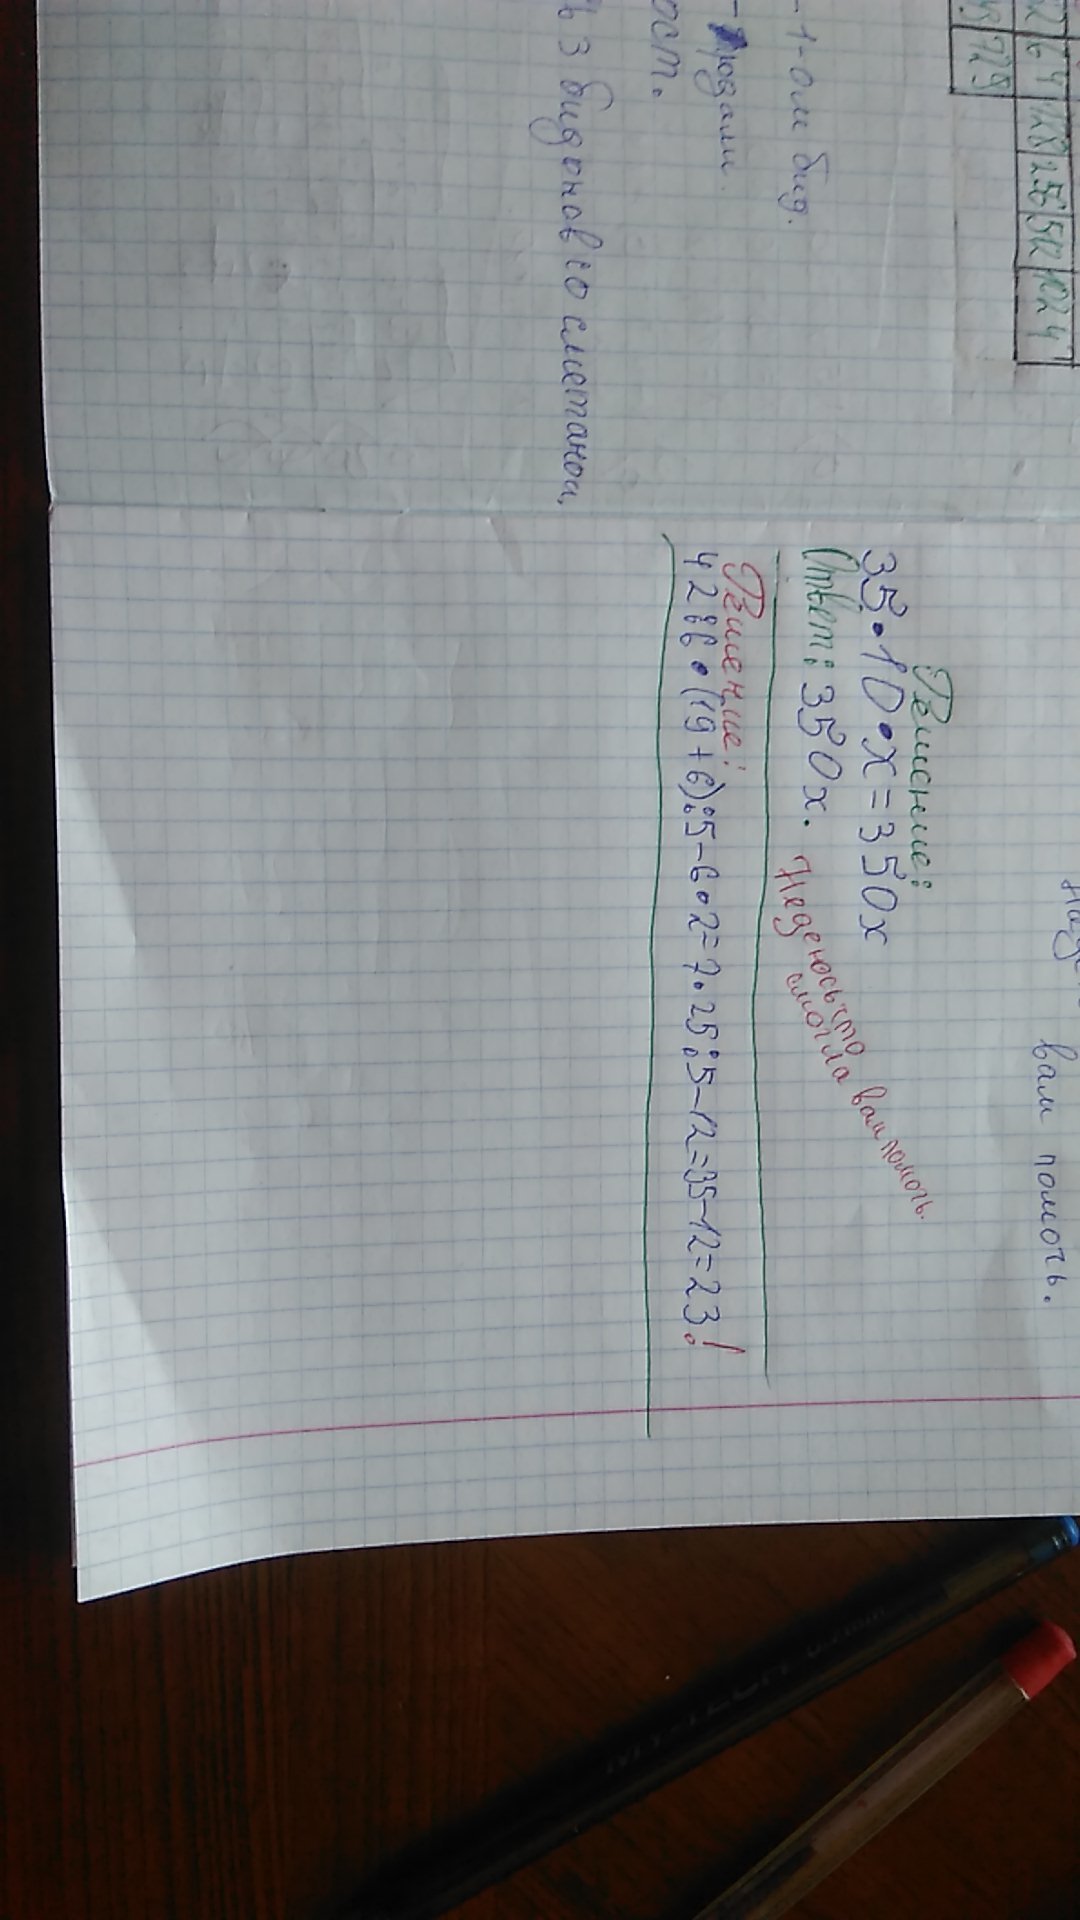 2 64 128 256 512 1024
729
- 1-ом бид.
- продали.
ост.
3 бидонов со сметаной,
вам помочь.
Решение:
35·10·х=350х
Ответ: 350х.
Надеюсь что
смогла вам помочь.
Решение:
42:6·(19+6):5-6·2=7·25:5-12=35-12=23!